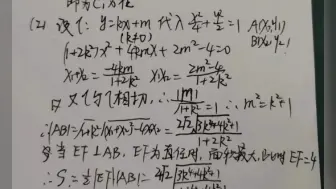 即为C₁方程
(2) 设l: y=kx+m 代入 x²/4+y²/2=1 A(x₁,y₁)
(k≠0) B(x₂,y₂)
(1+2k²)x²+4kmx+2m²-4=0
x₁+x₂=-4km/(1+2k²) x₁x₂=(2m²-4)/(1+2k²)
又l与 相切, ∴|m|/√(1+k²)=1 ∴m²=k²+1
∴|AB|=√(1+k²)·√((x₁+x₂)²-4x₁x₂)=2√2√(3k⁴+4k²+1)/(1+2k²)
当EF⊥AB, EF为直径时, 面积最大, 此时EF=4
∴S=½|EF||AB|=4√2√(3k⁴+4k²+1)